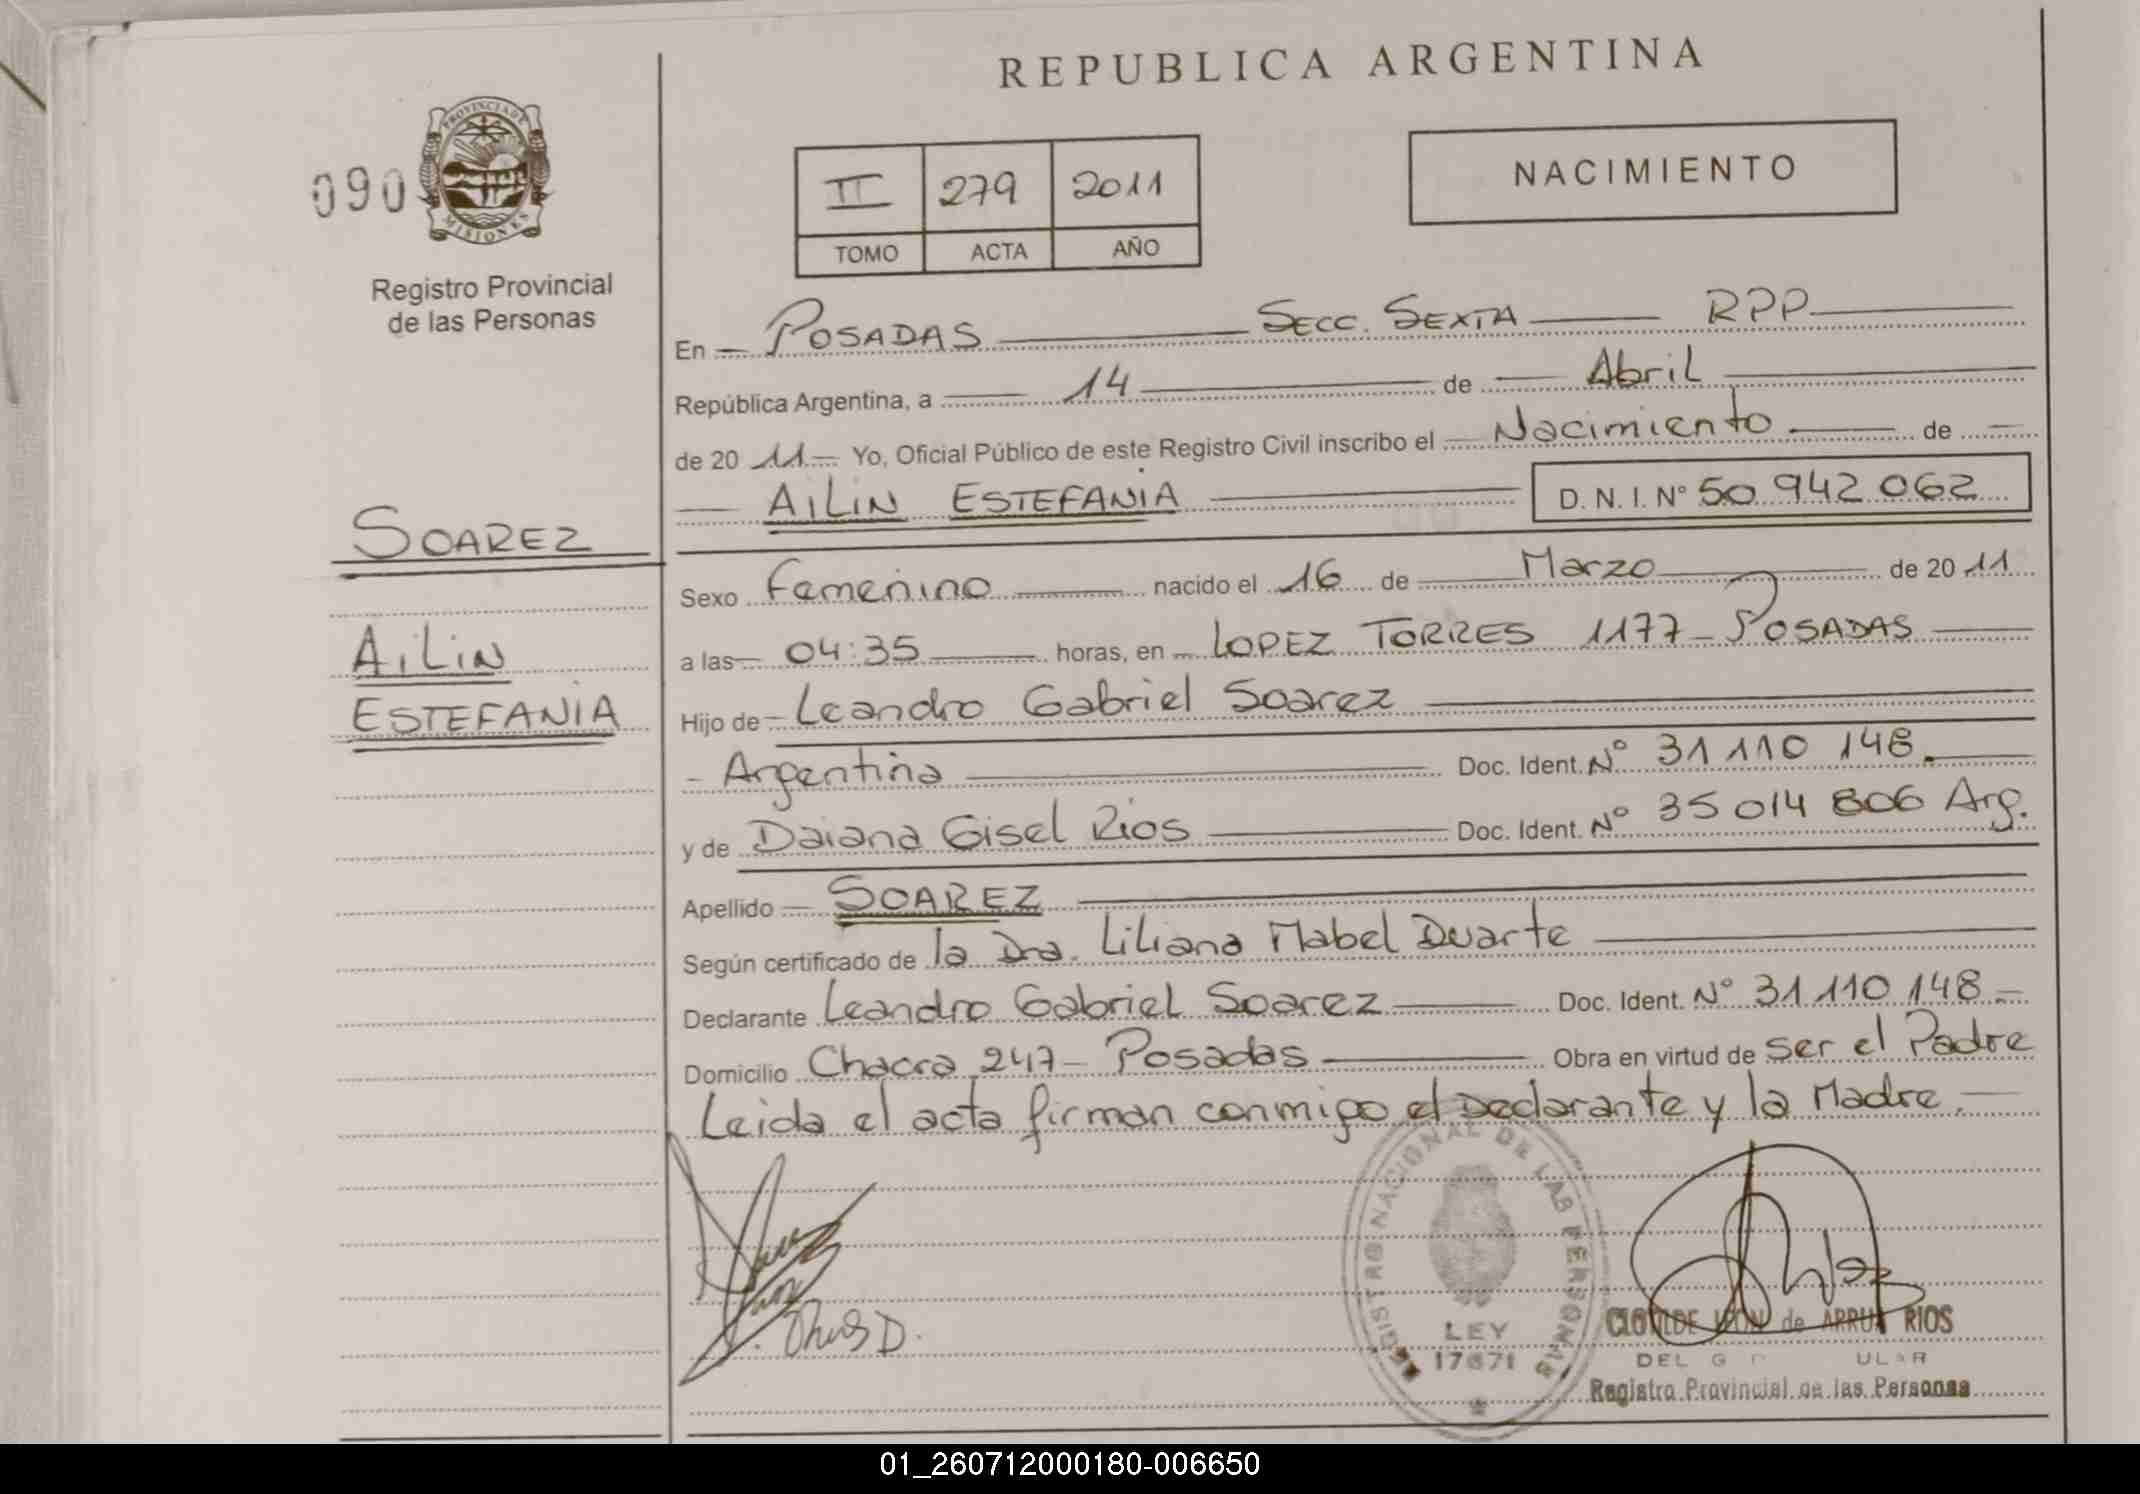 REPUBLICA ARGENTINA
090
PROVINCIA DE
MISIONES
Registro Provincial
de las Personas
II 279 2011
TOMO ACTA AÑO
NACIMIENTO
En POSADAS SECC. SEXTA RPP
República Argentina, a 14 de Abril
de 20 11 Yo, Oficial Público de este Registro Civil inscribo el Nacimiento de
AiLiN ESTEFANIA D. N. I. N° 50 942 062
SOAREZ
Sexo Femenino nacido el 16 de Marzo de 20 11
AiLiN
a las 04:35 horas, en LOPEZ TORRES 1177 - POSADAS
ESTEFANIA
Hijo de Leandro Gabriel Soarez
- Argentina Doc. Ident. N° 31 110 148.
y de Daiana Gisel Rios Doc. Ident. N° 35 014 806 Arg.
Apellido SOAREZ
Según certificado de la Dra. Liliana Mabel Duarte
Declarante Leandro Gabriel Soarez Doc. Ident. N° 31 110 148 -
Domicilio Chacra 247 - Posadas Obra en virtud de ser el Padre
Leida el acta firman conmigo el Declarante y la Madre.
REGISTRO NACIONAL DE LAS PERSONAS
LEY
17671
CLOTILDE LEON de ARRUA RIOS
Registro Provincial de las Personas
01_260712000180-006650